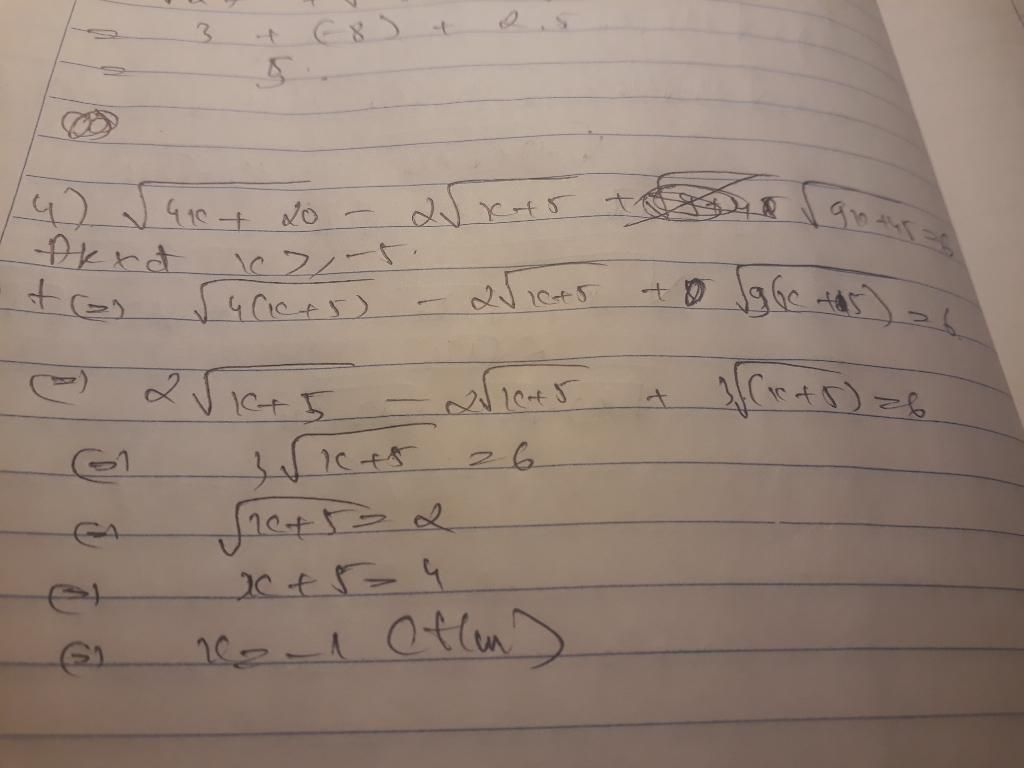 = 3 + (-8) + 2.5
= 5.
4) √4x + 20 - 2√x+5 + √9x+45 = 6
Đkxđ x ≥ -5.
+ (=) √4(x+5) - 2√x+5 + √9(x+5) = 6
(=) 2√x+5 - 2√x+5 + 3√(x+5) = 6
(=) 3√x+5 = 6
(=) √x+5 = 2
(=) x + 5 = 4
(=) x = -1 (t/m)